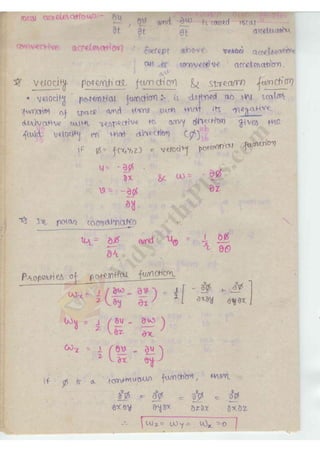 local accelerations:- ∂u/∂t, ∂v/∂t and ∂w/∂t is called local acceleration
convective acceleration : Except above acceleration all is convective acceleration.
Velocity potential function & stream function
• velocity potential function :- is defined as the scalar
function of space and time such that its negative
derivative with respective to any direction gives the
fluid velocity in that direction (ø)
if ø = f(x,y,z) = velocity potential function
u = -∂ø/∂x & w = ∂ø/∂z
v = -∂ø/∂y.
In polar coordinates
ur = ∂ø/∂r. and uθ = 1/r ∂ø/∂θ
Properties of potential function
wx = 1/2 (∂w/∂y - ∂v/∂z) = 1/2 [-∂ø/∂x∂y + ∂ø/∂y∂x]
wy = 1/2 (∂u/∂z - ∂w/∂x)
wx = 1/2 (∂v/∂x - ∂u/∂y)
if ø is a continuous function, then
∂²ø/∂x∂y = ∂²ø/∂y∂x = ∂²ø/∂z∂x = ∂²ø/∂x∂z
∴ wz = wy = wx = 0